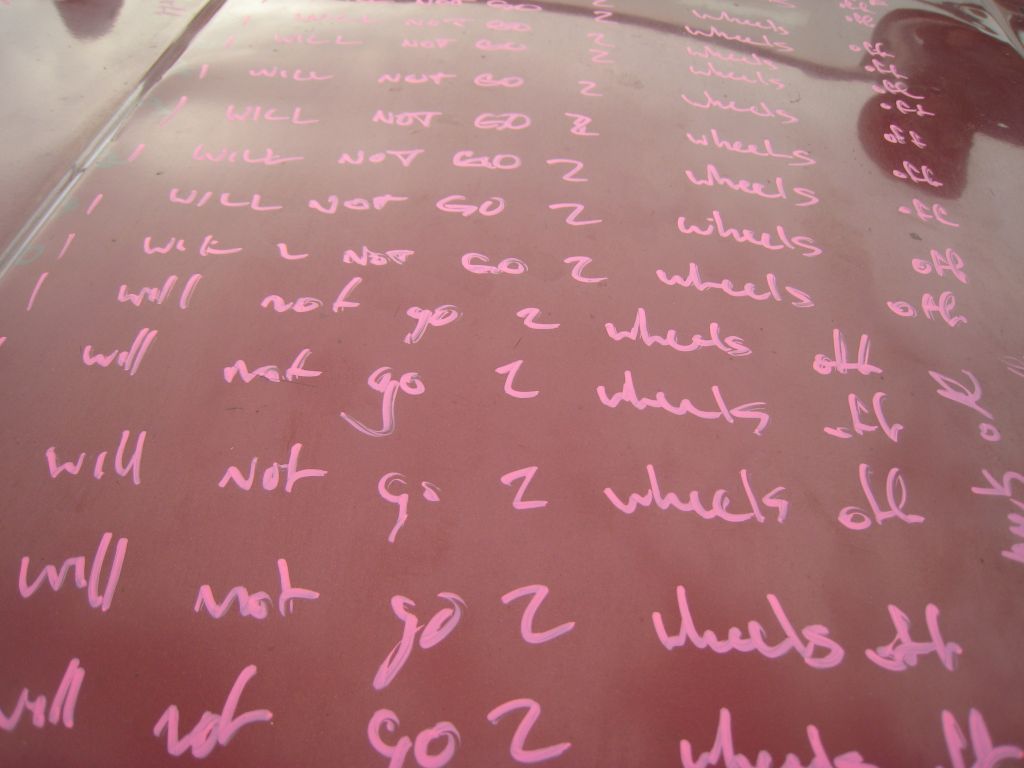 NOT GO 2 wheels off
WILL NOT GO 2 wheels off
I WILL NOT GO 2 wheels off
I WILL NOT GO 2 wheels off
I WILL NOT GO 2 wheels off
I WILL NOT GO 2 wheels off
I WILL NOT GO 2 wheels off
I WILL NOT GO 2 wheels off
I will not go 2 wheels off
I will not go 2 wheels off
will not go 2 wheels off
will not go 2 wheels off
will not go 2 wheels off